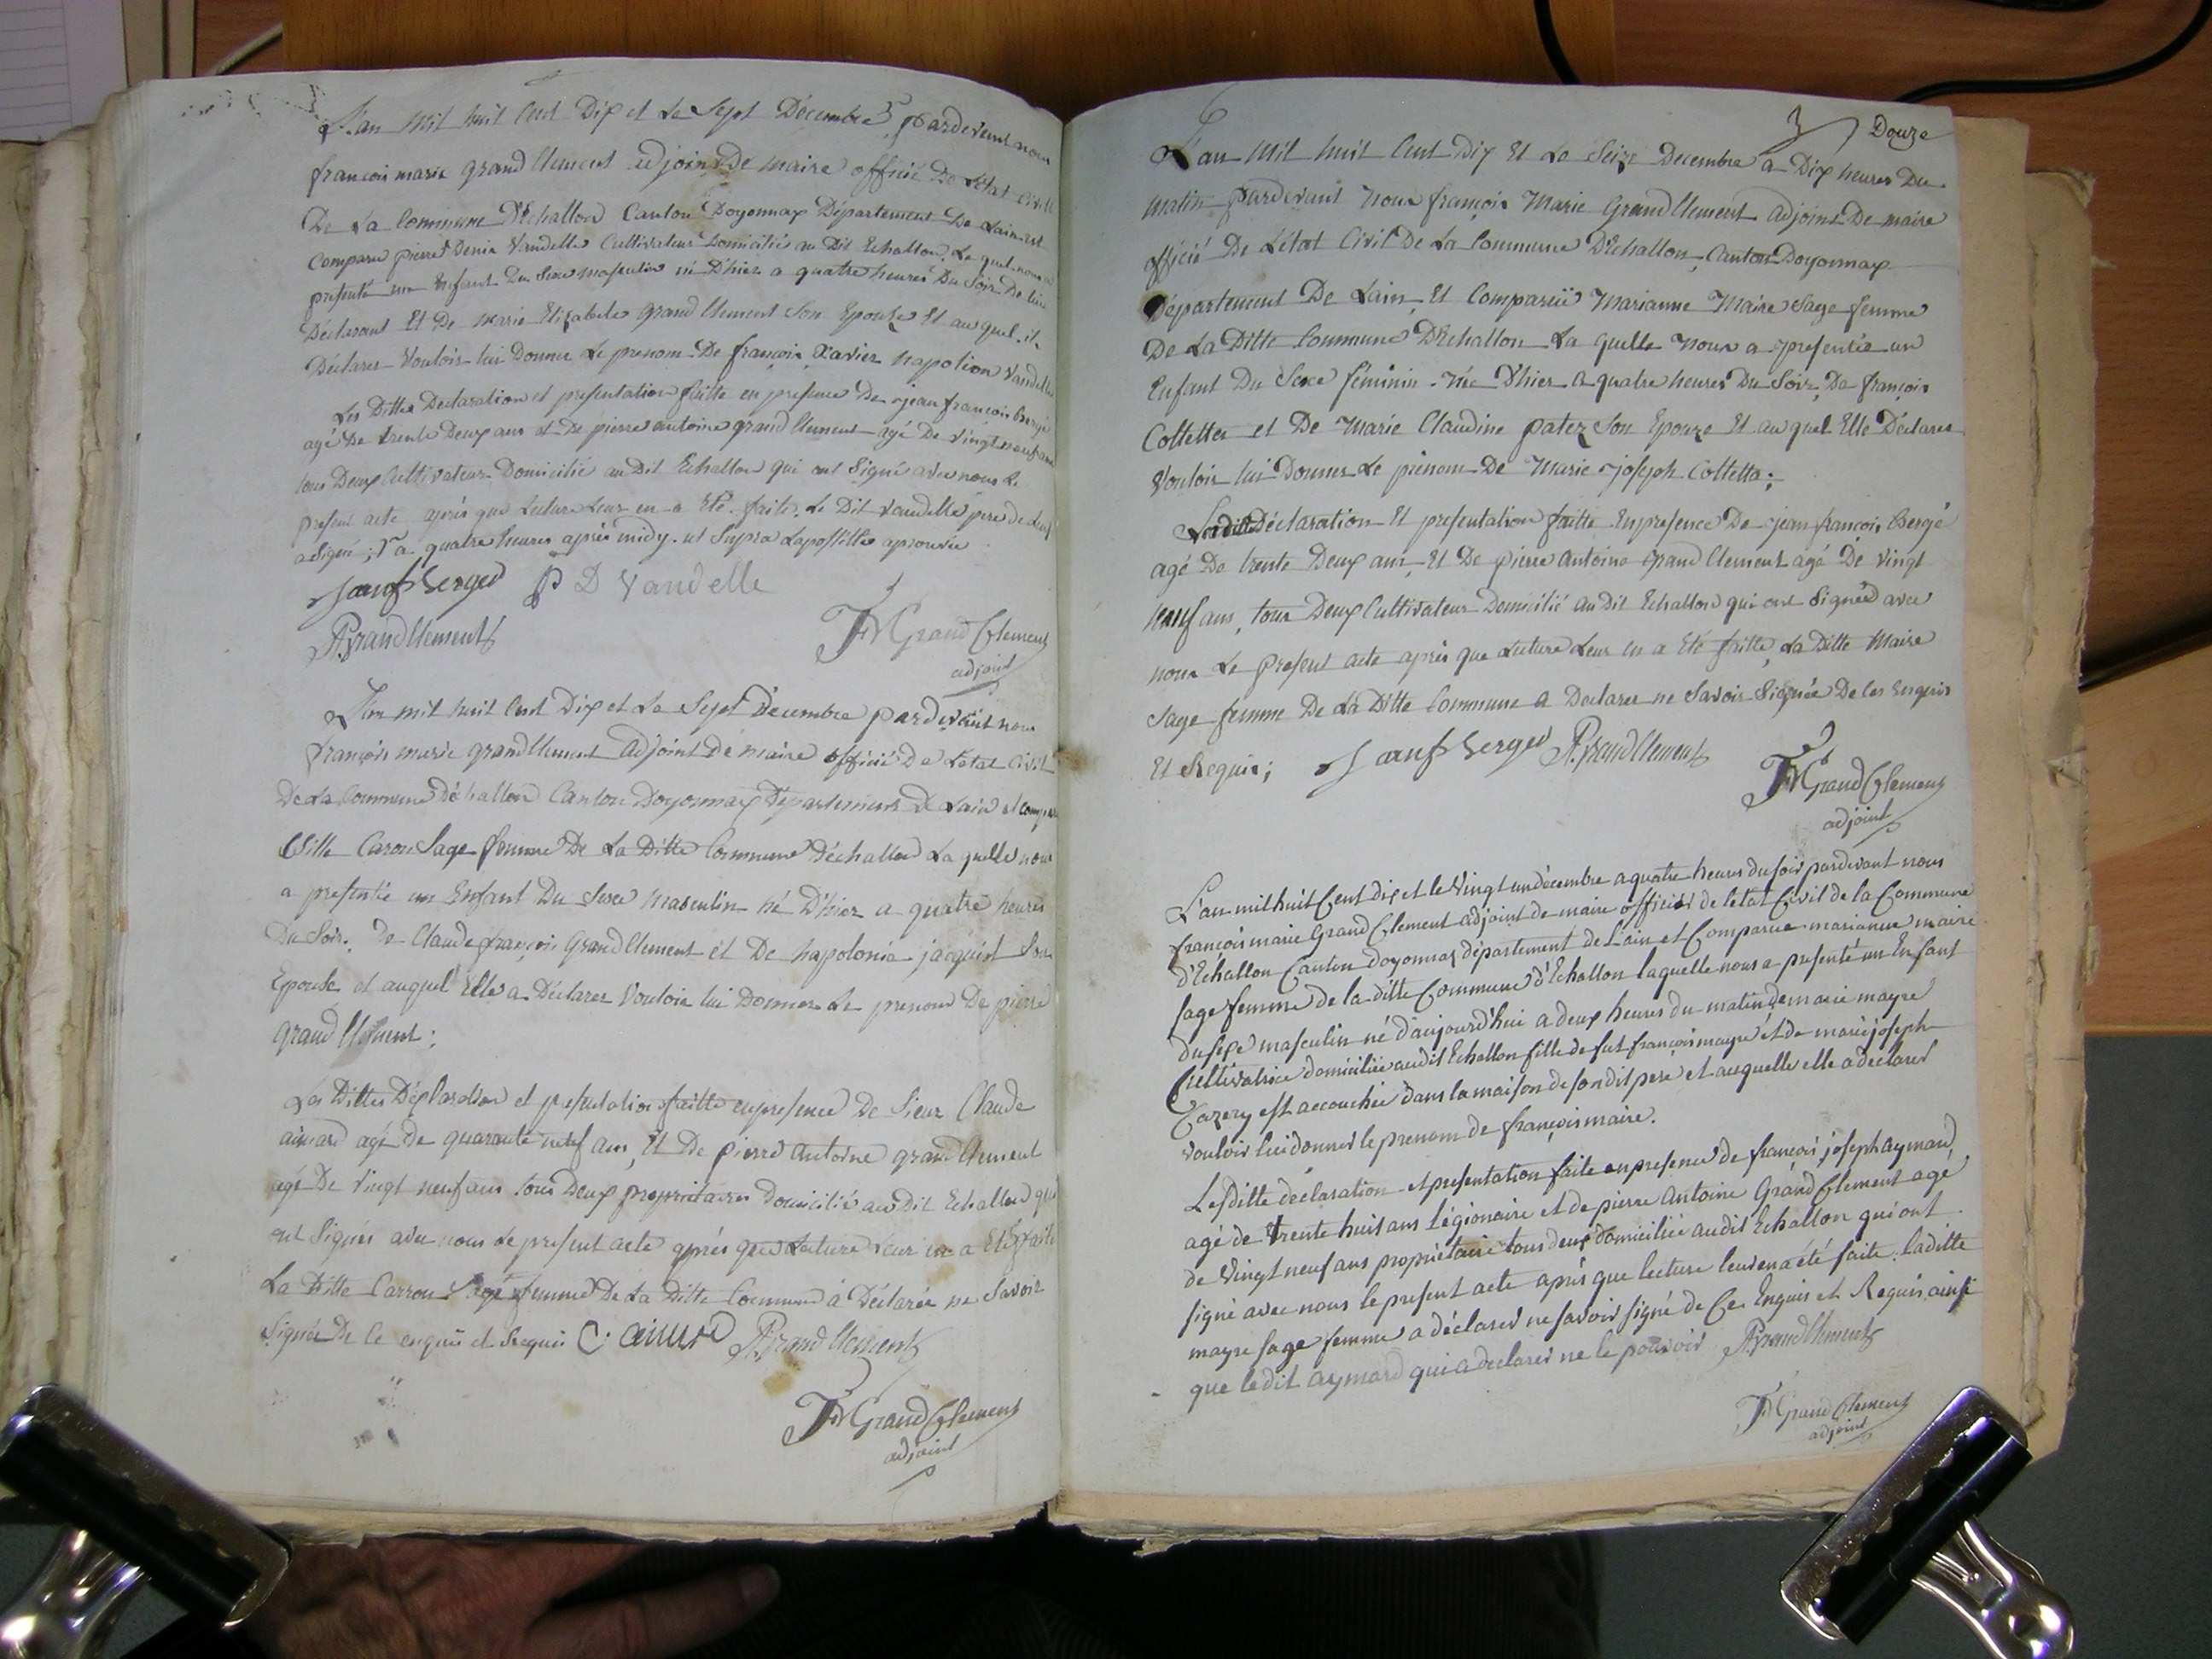 L'an mil huit Cent Dix et Le Sept Décembre pardevant nous
françois marie grand Clement adjoint De maire officié De L'état Civil
De La Commune D'Echallon Canton Doyonnax Département De Lain est
Comparu pierre Denis Vandelle Cultivateur Domicilié au Dit Echallon, Le quel nous a
presenté un Enfant Du Sexe masculin né D'hier a quatre heures Du Soir De lui
Déclarant Et De marie Elizabele grand Clement Son Epouse Et au quel il
Déclarer Vouloir lui Donner Le prenom De françois Xavier napolion Vandelle
Les Dittes Declaration et presentation faitte en presence De jean françois Bergé
agé De trente Deux ans et De pierre antoine grand Clement agé De Vingt neuf ans
tous Deux Cultivateur Domicilié au Dit Echallon qui ont Signé avec nous Le
present acte après que Lecture Leur en a Eté faite. Le Dit Vandelle pere de
a Signé; a quatre heures après midy. ut Supra Lapostille aprouvée
Jeanfs Berged P D Vandelle
P. grand Clement
FM Grand Clement
adjoint
L'an mil huit Cent Dix et Le Sept Décembre pardevant nous
françois marie grand Clement adjoint De maire officié De Létat Civil
De La Commune Déchallon Canton Doyonnax Département De Lain et
Caron Sage femme De La Ditte Commune Déchallon La quelle nous
a presentée un Enfant Du Sexe masculin né D'hier a quatre heures
Du Soir. De Claude françois Grand Clement et De napolonie jacquiot Son
Epouse et auquel Elle a Déclarer Vouloir lui Donner Le prenom De pierre
grand Clement;
Les Dittes Déclaration et presentation faitte en presence De Sieur Claude
aimard agé De quarante neuf ans, Et De pierre antoine grand Clement
agé De Vingt neuf ans tous Deux proprietaires Domicilié au Dit Echallon qui
ont Signés avec nous Le present acte après que Lecture Leur en a Eté faite
La Ditte Carron Sage femme De La Ditte Commune a Déclarée ne Savoir
Signée De Ce enquis et Requis C. aimard P. grand Clement
FM Grand Clement
adjoint
Douze
L'an Mil huit Cent Dix Et Le Seize Decembre a Dix heures Du
Matin pardevant Nous françois Marie Grand Clement adjoint De maire
officié De L'état Civil De La Commune D'Echallon, Canton Doyonnax
Département De Lain, Et Comparüe Marianne Maire Sage femme
De La Ditte Commune D'Echallon La quelle Nous a presentée un
Enfant Du Sexe féminin Née D'hier a quatre heures Du Soir, De françois
Collettaz et De Marie Claudine patez Son Epouze Et au quel Elle Déclarer
Vouloir lui Donner Le prénom De Marie joseph Colletta;
Les dittes Déclaration Et presentation faitte En presence De jean françois Bergé
agé De trente Deux ans, Et De pierre antoine Grand Clement agé De Vingt
neuf ans, tous Deux Cultivateur Domicilié au Dit Echallon qui ont Signéé avec
nous Le present acte après que Lecture Leur en a Eté faitte, La Ditte Maire
Sage femme De La Ditte Commune a Declarer ne Savoir Signée De Ces Enquis
Et Requis; Jeanfs Berged P. grand Clement
FM Grand Clement
adjoint
L'an mil huit Cent dix et le Vingt un décembre a quatre heures du soir pardevant nous
françois marie Grand Clement adjoint de maire officier de letat Civil de la Commune
d'Echallon Canton doyonnax département de L'ain et Comparue marianne maire
sage femme de la ditte Commune d'Echallon laquelle nous a presenté un Enfant
du sexe masculin né d'aujourd'hui a deux heures du matin de marie mayre
Cultivatrice domiciliée audit Echallon fille de fut françois mayre et de marie joseph
est accouchée dans la maison de son dit pere et auquelle elle a déclarer
vouloir lui donner le prenom de françois maire.
Lesditte déclaration et presentation faite en presence de françois joseph aymard
agé de trente huit ans légionaire et de pierre antoine Grand Clement agé
de Vingt neuf ans propriétaire tous deux domiciliée audit Echallon qui ont
signé avec nous le present acte aprés que lecture leur en a été faite. la ditte
mayre sage femme a déclarer ne savoir signé de Ce Enquis et Requis, ainsi
que le dit aymard qui a declarer ne le pouvoir P. grand Clement
FM Grand Clement
adjoint